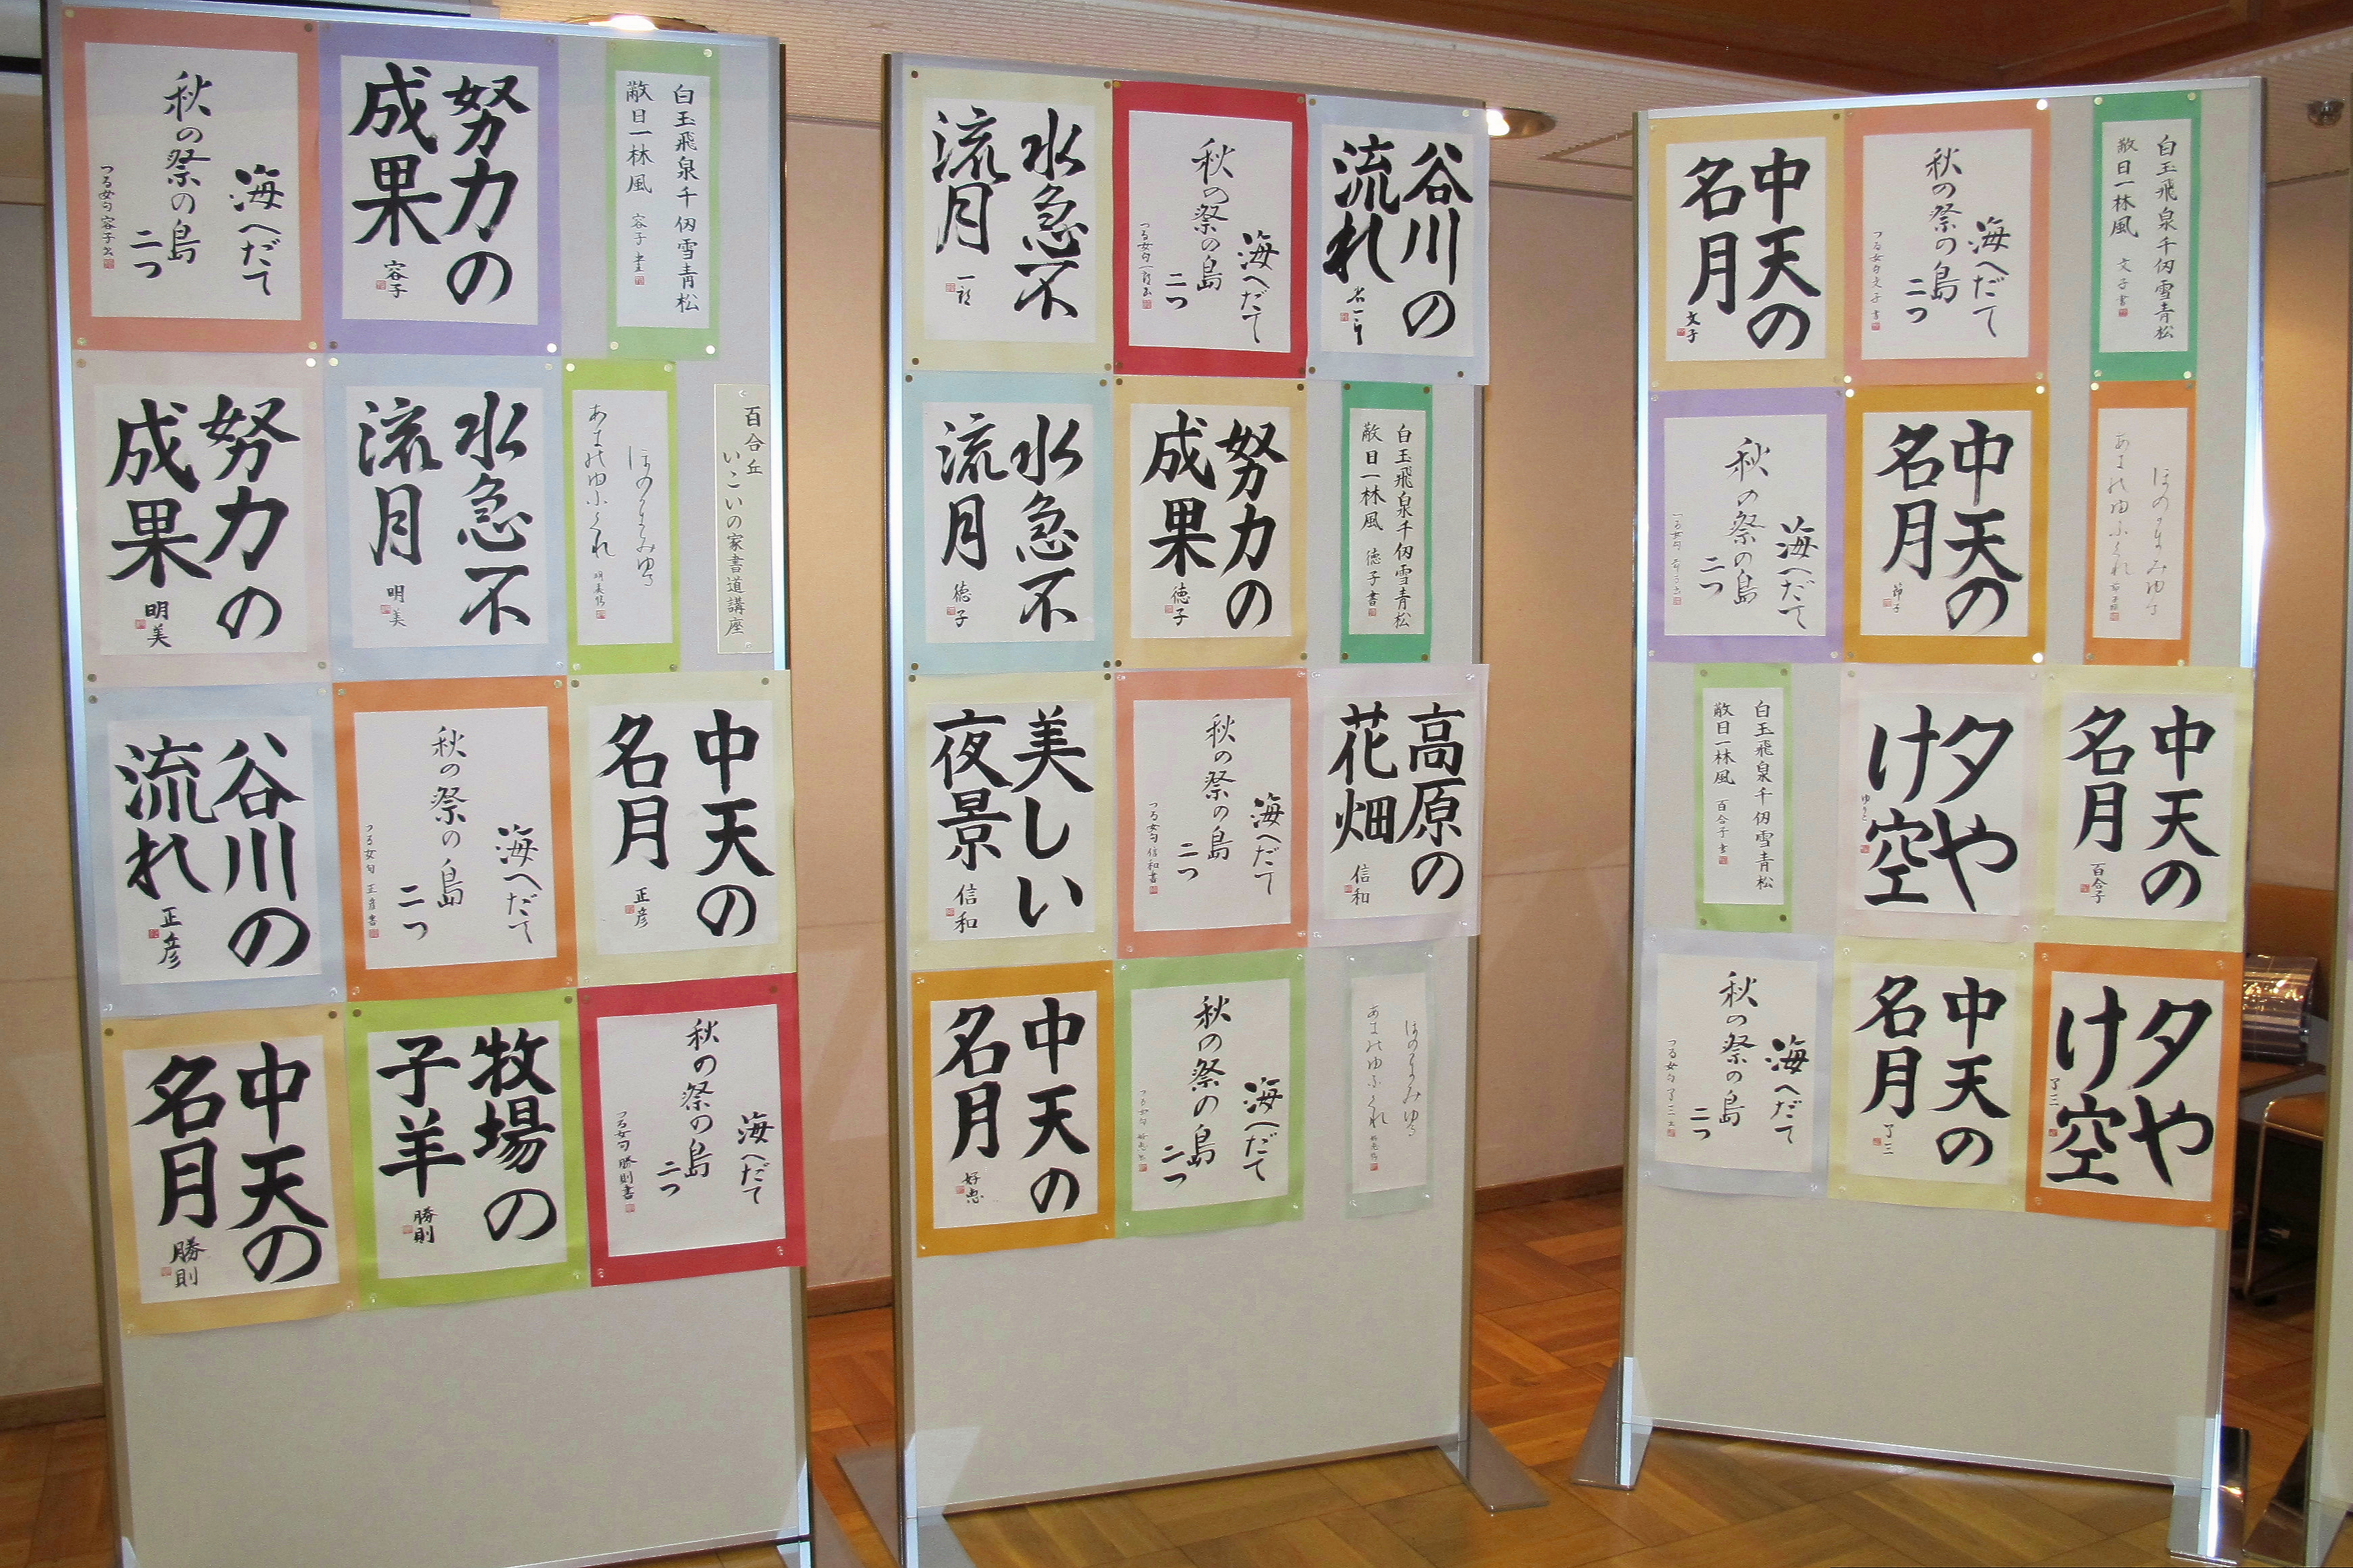 海へだて
秋の祭の島
二つ
つる女句 容子書
努力の
成果
容子
白玉飛泉千仭雪青松
敵日一林風 容子書
努力の
成果
明美
水急不
流月
明美
百合丘
いこいの家書道講座
谷川の
流れ
正彦
海へだて
秋の祭の島
二つ
つる女句 正彦書
中天の
名月
正彦
中天の
名月
勝則
牧場の
子羊
勝則
海へだて
秋の祭の島
二つ
つる女句 勝則書
水急不
流月
海へだて
秋の祭の島
二つ
谷川の
流れ
水急不
流月
徳子
努力の
成果
徳子
白玉飛泉千仭雪青松
敵日一林風 徳子書
美しい
夜景
信和
海へだて
秋の祭の島
二つ
つる女句 信和書
高原の
花畑
信和
中天の
名月
好忠
海へだて
秋の祭の島
二つ
中天の
名月
文子
海へだて
秋の祭の島
二つ
つる女句 文子書
白玉飛泉千仭雪青松
敵日一林風 文子書
海へだて
秋の祭の島
二つ
中天の
名月
節子
白玉飛泉千仭雪青松
敵日一林風 百合子書
夕や
け空
ゆりこ
中天の
名月
百合子
海へだて
秋の祭の島
二つ
つる女句 了三書
中天の
名月
了三
夕や
け空
了三